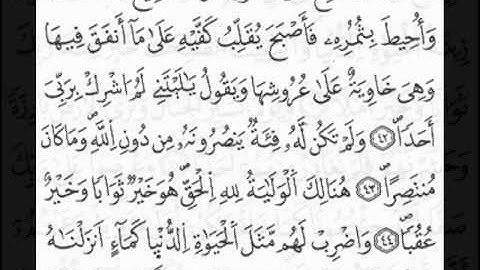 وَأُحِيطَ بِثَمَرِهِۦ فَأَصْبَحَ يُقَلِّبُ كَفَّيْهِ عَلَىٰ مَآ أَنفَقَ فِيهَا
وَهِىَ خَاوِيَةٌ عَلَىٰ عُرُوشِهَا وَيَقُولُ يَـٰلَيْتَنِى لَمْ أُشْرِكْ بِرَبِّىٓ
أَحَدًا ٤٢ وَلَمْ تَكُن لَّهُۥ فِئَةٌ يَنصُرُونَهُۥ مِن دُونِ ٱللَّهِ وَمَا كَانَ
مُنتَصِرًا ٤٣ هُنَالِكَ ٱلْوَلَـٰيَةُ لِلَّهِ ٱلْحَقِّ هُوَ خَيْرٌ ثَوَابًا وَخَيْرٌ
عُقْبًا ٤٤ وَٱضْرِبْ لَهُم مَّثَلَ ٱلْحَيَوٰةِ ٱلدُّنْيَا كَمَآءٍ أَنزَلْنَـٰهُ